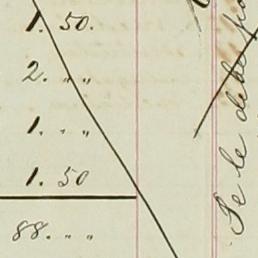 1. 50.
2. " "
1. " "
1. 50
88. " "
Je le